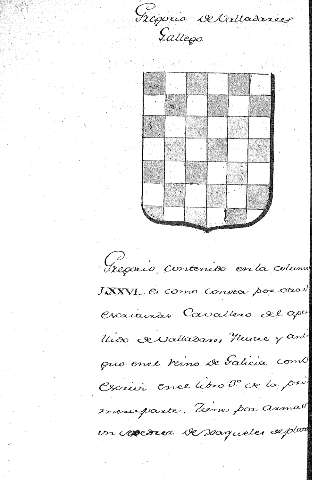 Gregorio de Valladares
Gallego
Gregorio contenido en la colum
LXXVI. es como consta por otras
escrituras Cavallero del ape
llido de Valladares Ilustre y anti
guo en el Reino de Galicia como
escriví en el libro 3º de la pri
mera parte. Tiene por armas
un de xaqueles de plata